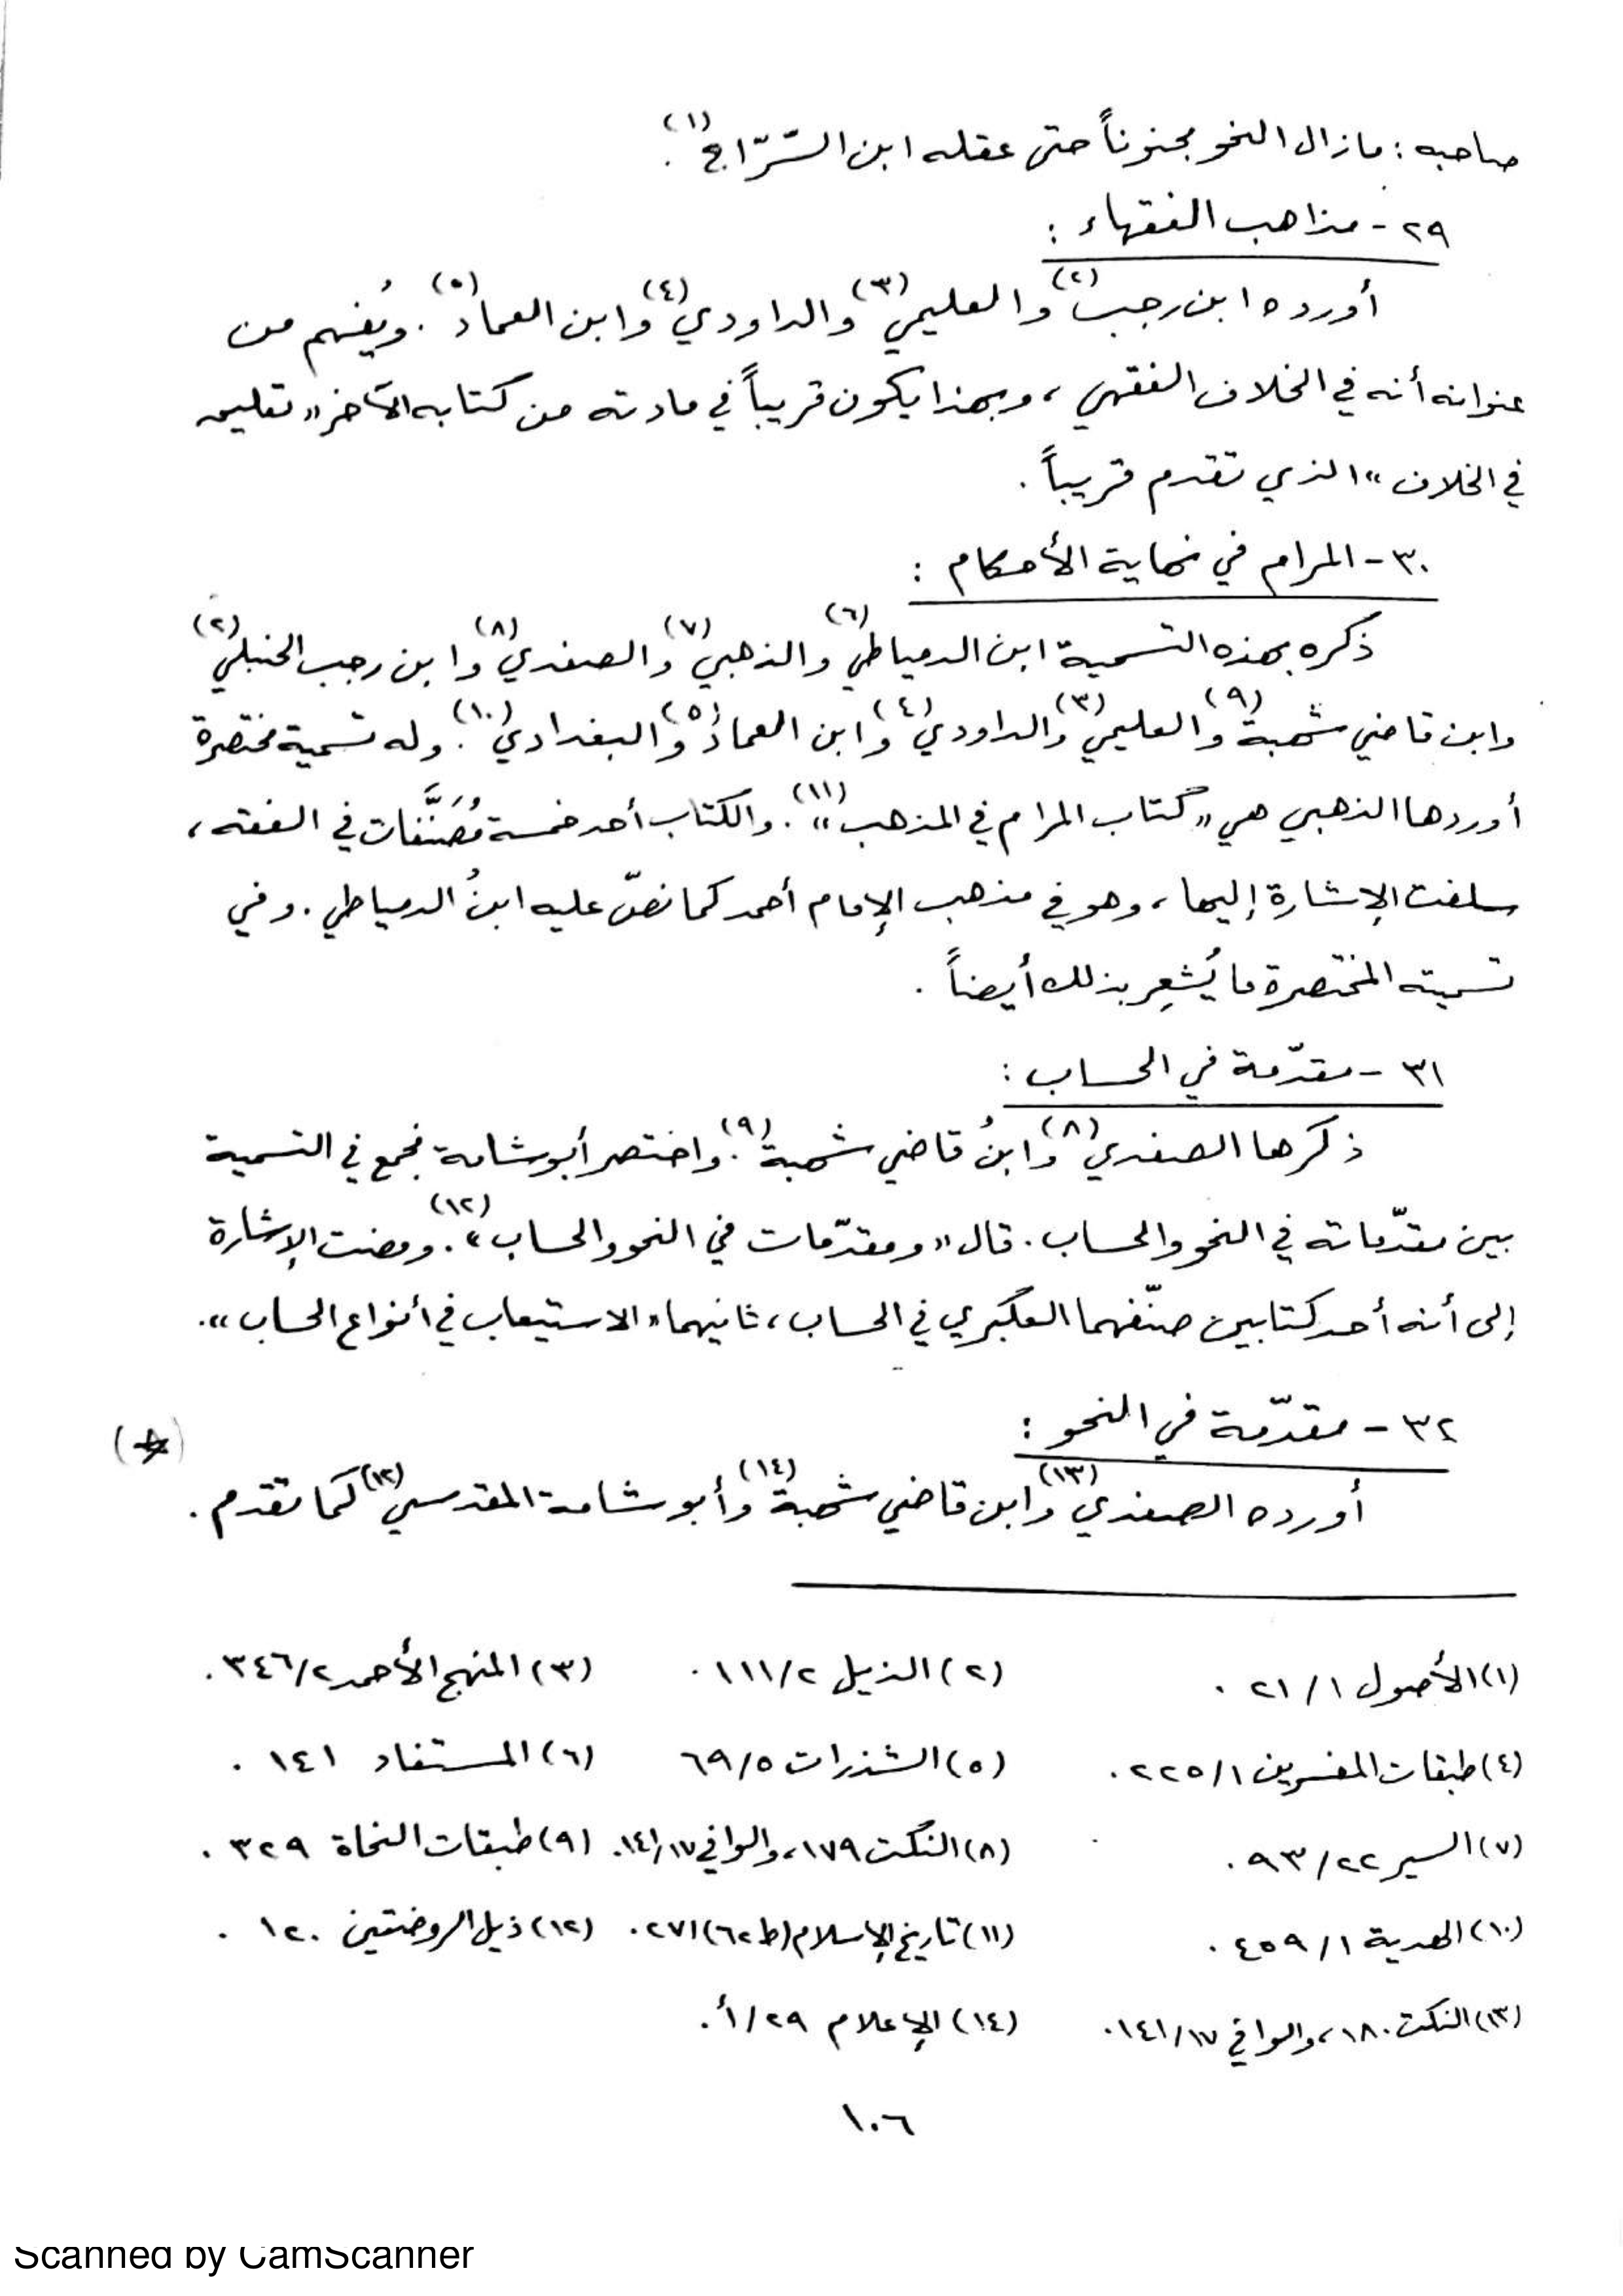 صاحبه : مازال النحو مجنوناً حتى عقله ابن السّرّاج(١) .
٢٩ - مذاهب الفقهاء :
أورده ابن رجب(٢) والعليمي(٣) والداودي(٤) وابن العماد(٥) . ويُفهم من
عنوانه أنه في الخلاف الفقهي ، وبهذا يكون قريباً في مادته من كتابه الآخر « تعليق
في الخلاف » الذي تقدم قريباً .
٣٠ - المرام في نهاية الأحكام :
ذكره بهذه التسمية ابن الدمياطي(٦) والذهبي(٧) والصفدي(٨) وابن رجب الحنبلي(٢)
وابن قاضي شهبة(٩) والعليمي(٣) والداودي(٤) وابن العماد(٥) والبغدادي(١٠) . وله تسمية مختصرة
أوردها الذهبي هي « كتاب المرام في المذهب »(١١) . والكتاب أحد خمسة مُصَنَّفات في الفقه ،
سلفت الإشارة إليها ، وهو في مذهب الإمام أحمد كما نصّ عليه ابنُ الدمياطي . وفي
تسميته المختصرة ما يُشعِر بذلك أيضاً .
٣١ - مقدّمة في الحساب :
ذكرها الصفدي(٨) وابنُ قاضي شهبة(٩) . واختصر أبو شامة فجمع في التسمية
بين مقدّماته في النحو والحساب . قال « ومقدّمات في النحو والحساب »(١٢) . ومضت الإشارة
إلى أنه أحد كتابين صنّفهما العكبري في الحساب ، ثانيهما « الاستيعاب في أنواع الحساب » .
٣٢ - مقدّمة في النحو : (☆)
أورده الصفدي(١٣) وابن قاضي شهبة(١٤) وأبو شامة المقدسي(١٢) كما تقدم .
(١) الأصول ٢١/١ . (٢) الذيل ١١١/٢ . (٣) المنهج الأحمد ٣٤٦/٢ .
(٤) طبقات المفسرين ٢٢٥/١ . (٥) الشذرات ٦٩/٥ (٦) المستفاد ١٤١ .
(٧) السير ٩٣/٢٢ . (٨) النكت ١٧٩ ، والوافي ١٤١/١٧ . (٩) طبقات النحاة ٣٢٩ .
(١٠) الهدية ٤٥٩/١ . (١١) تاريخ الإسلام (ط ٦٢) ٢٧١ . (١٢) ذيل الروضتين ١٢٠ .
(١٣) النكت ١٨٠ ، والوافي ١٤١/١٧ . (١٤) الإعلام ٢٩/أ .
١٠٦
Scanned by CamScanner